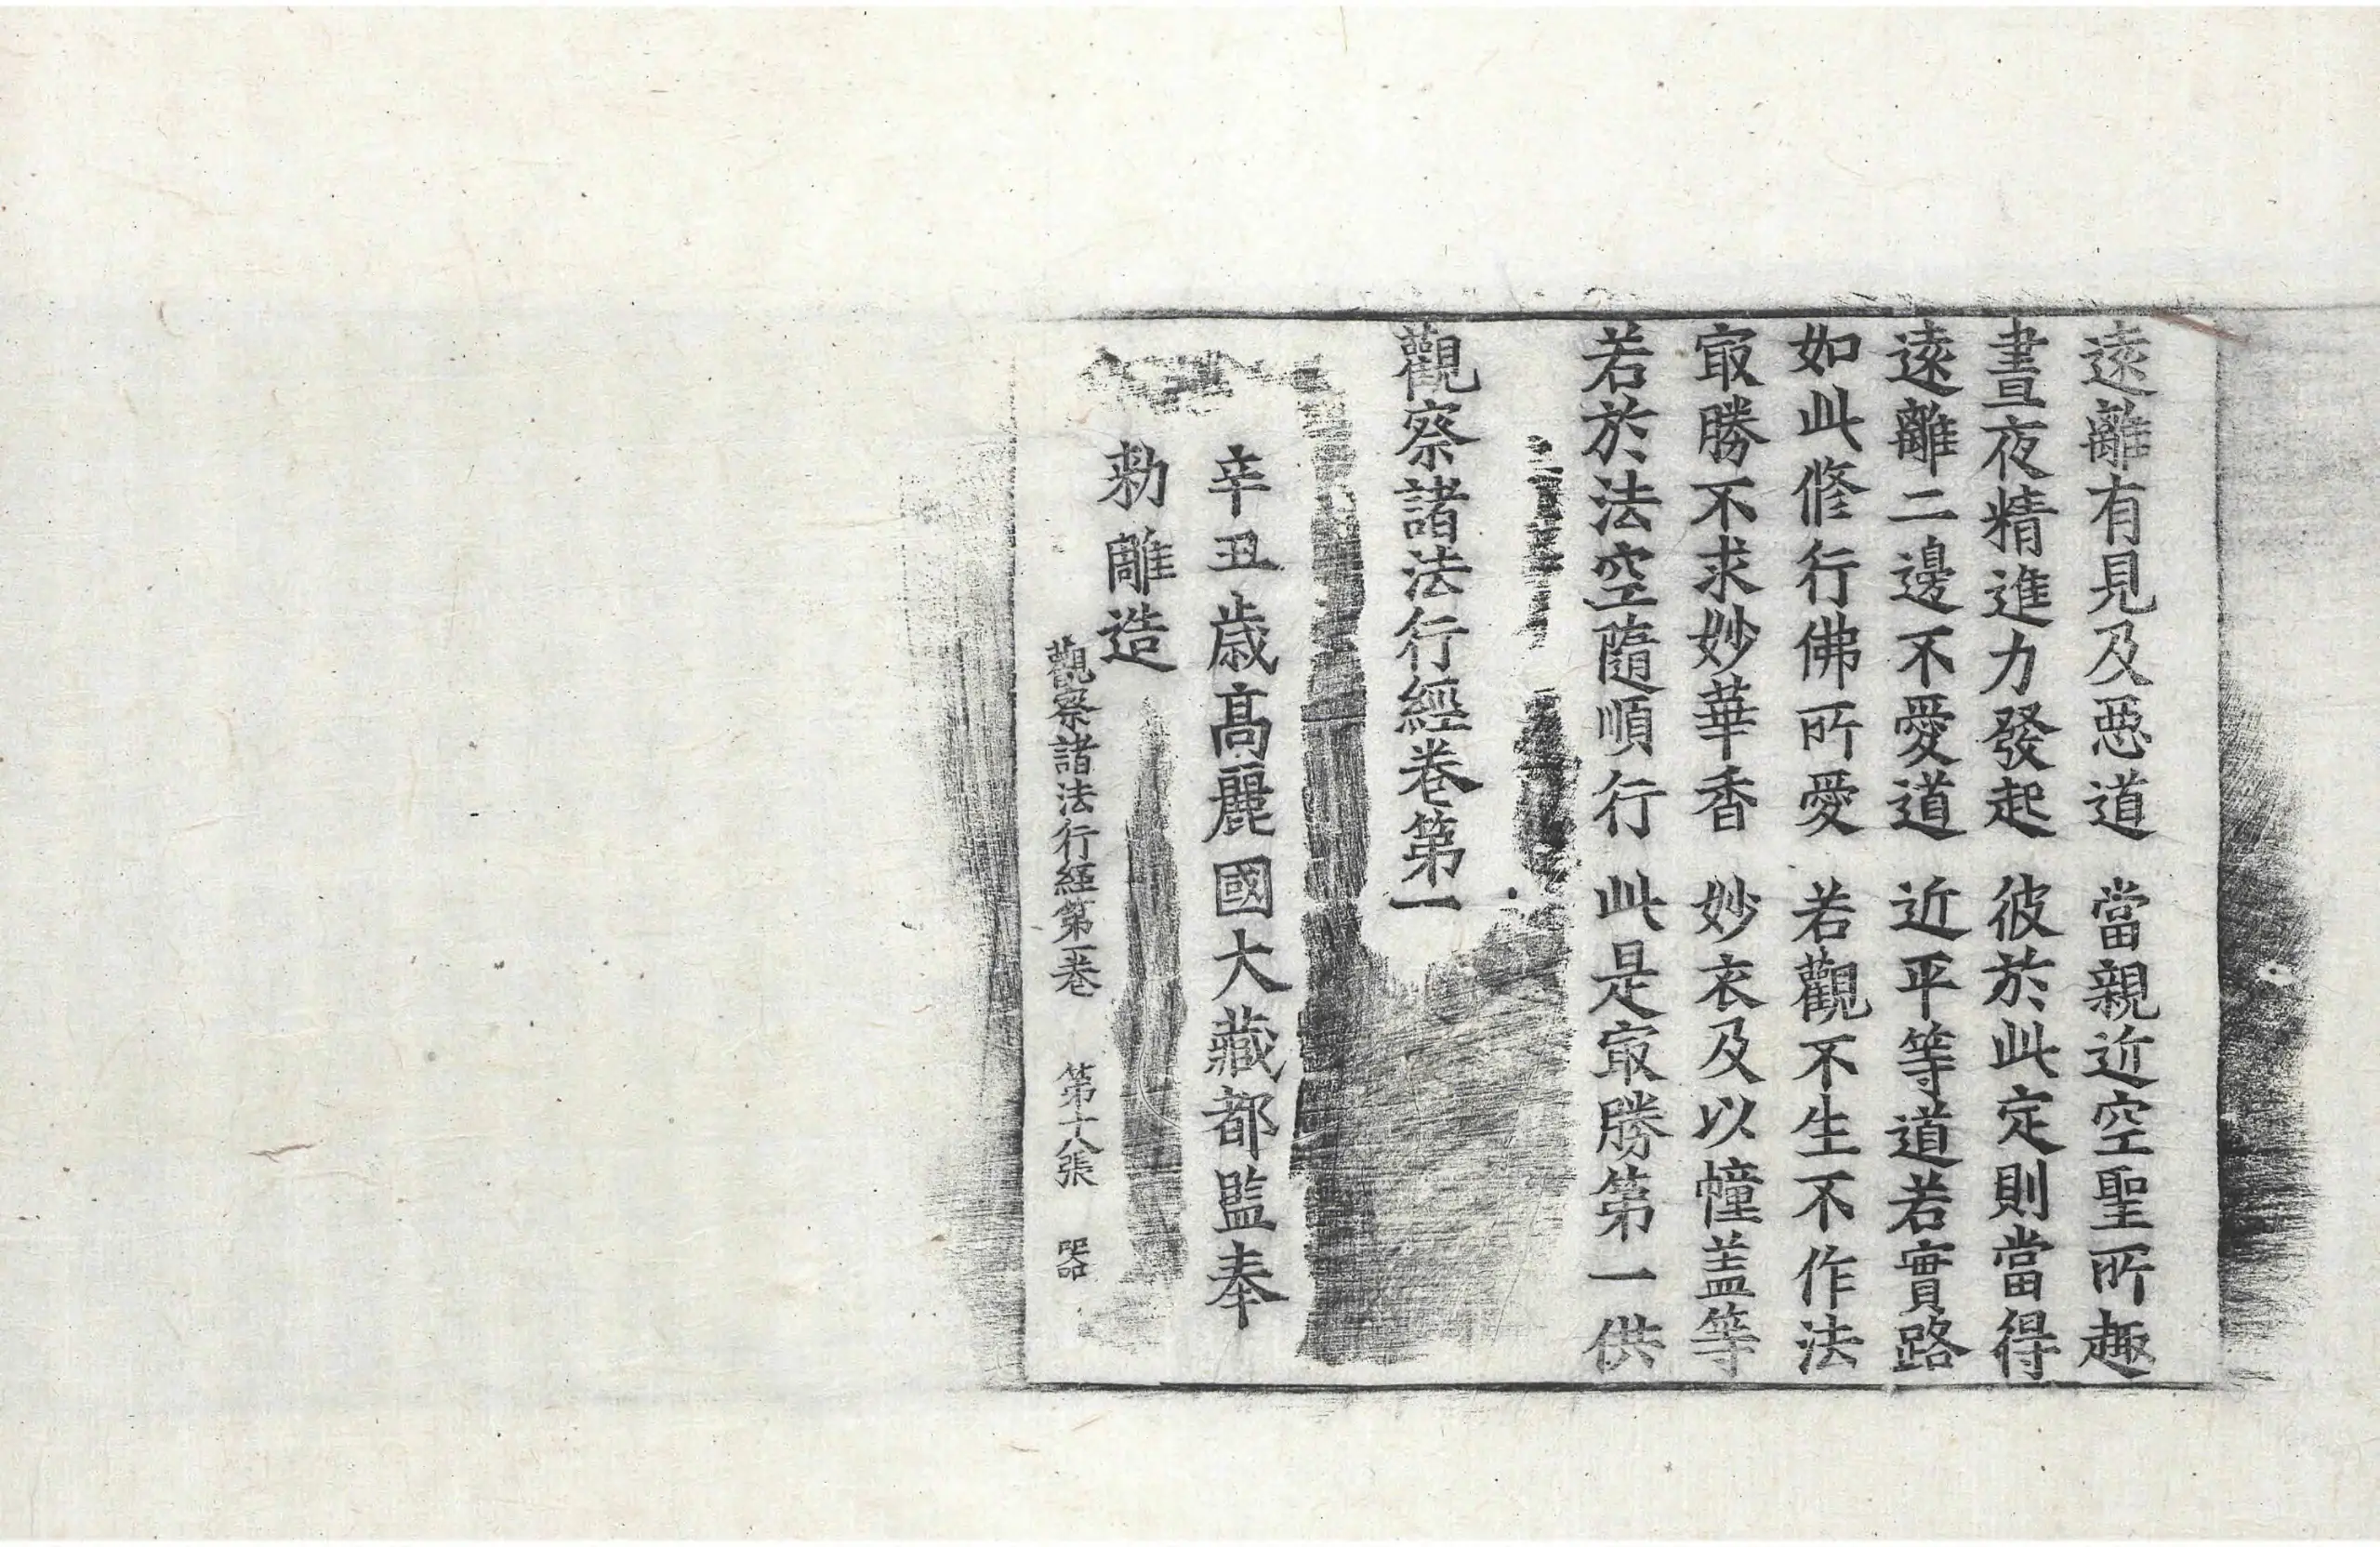 遠離有見及惡道 當親近空聖所趣
晝夜精進力發起 彼於此定則當得
遠離二邊不愛道 近平等道若實路
如此修行佛所愛 若觀不生不作法
冣勝不求妙華香 妙衣及以幢盖等
若於法空隨順行 此是冣勝第一供
觀察諸法行經卷第一
辛丑歲高麗國大藏都監奉
勑雕造
觀察諸法行經第一卷 第十八張 器